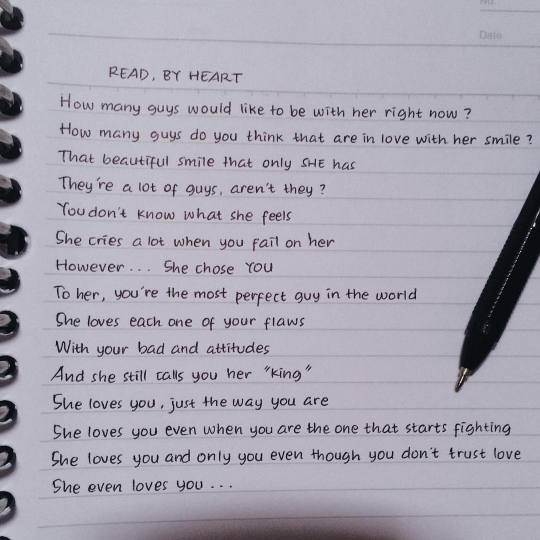 No.
Date
READ, BY HEART
How many guys would like to be with her right now ?
How many guys do you think that are in love with her smile ?
That beautiful smile that only SHE has
They're a lot of guys, aren't they ?
You don't know what she feels
She cries a lot when you fail on her
However... She chose YOU
To her, you're the most perfect guy in the world
She loves each one of your flaws
With your bad and attitudes
And she still calls you her "king"
She loves you, just the way you are
She loves you even when you are the one that starts fighting
She loves you and only you even though you don't trust love
She even loves you ...